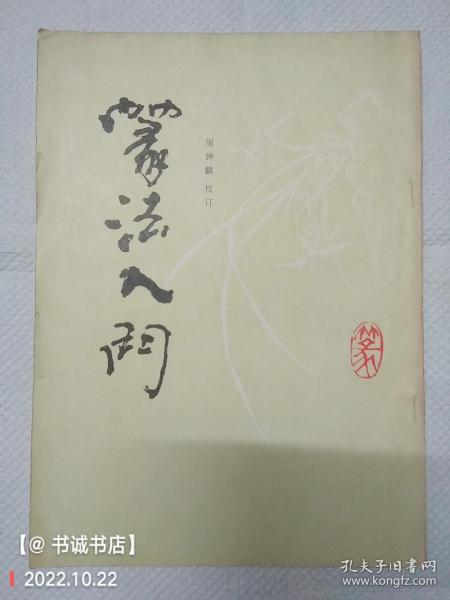 篆法入門
周钟麟 校订
篆
【@ 书诚书店】
2022.10.22
孔夫子旧书网
www.kongfz.com